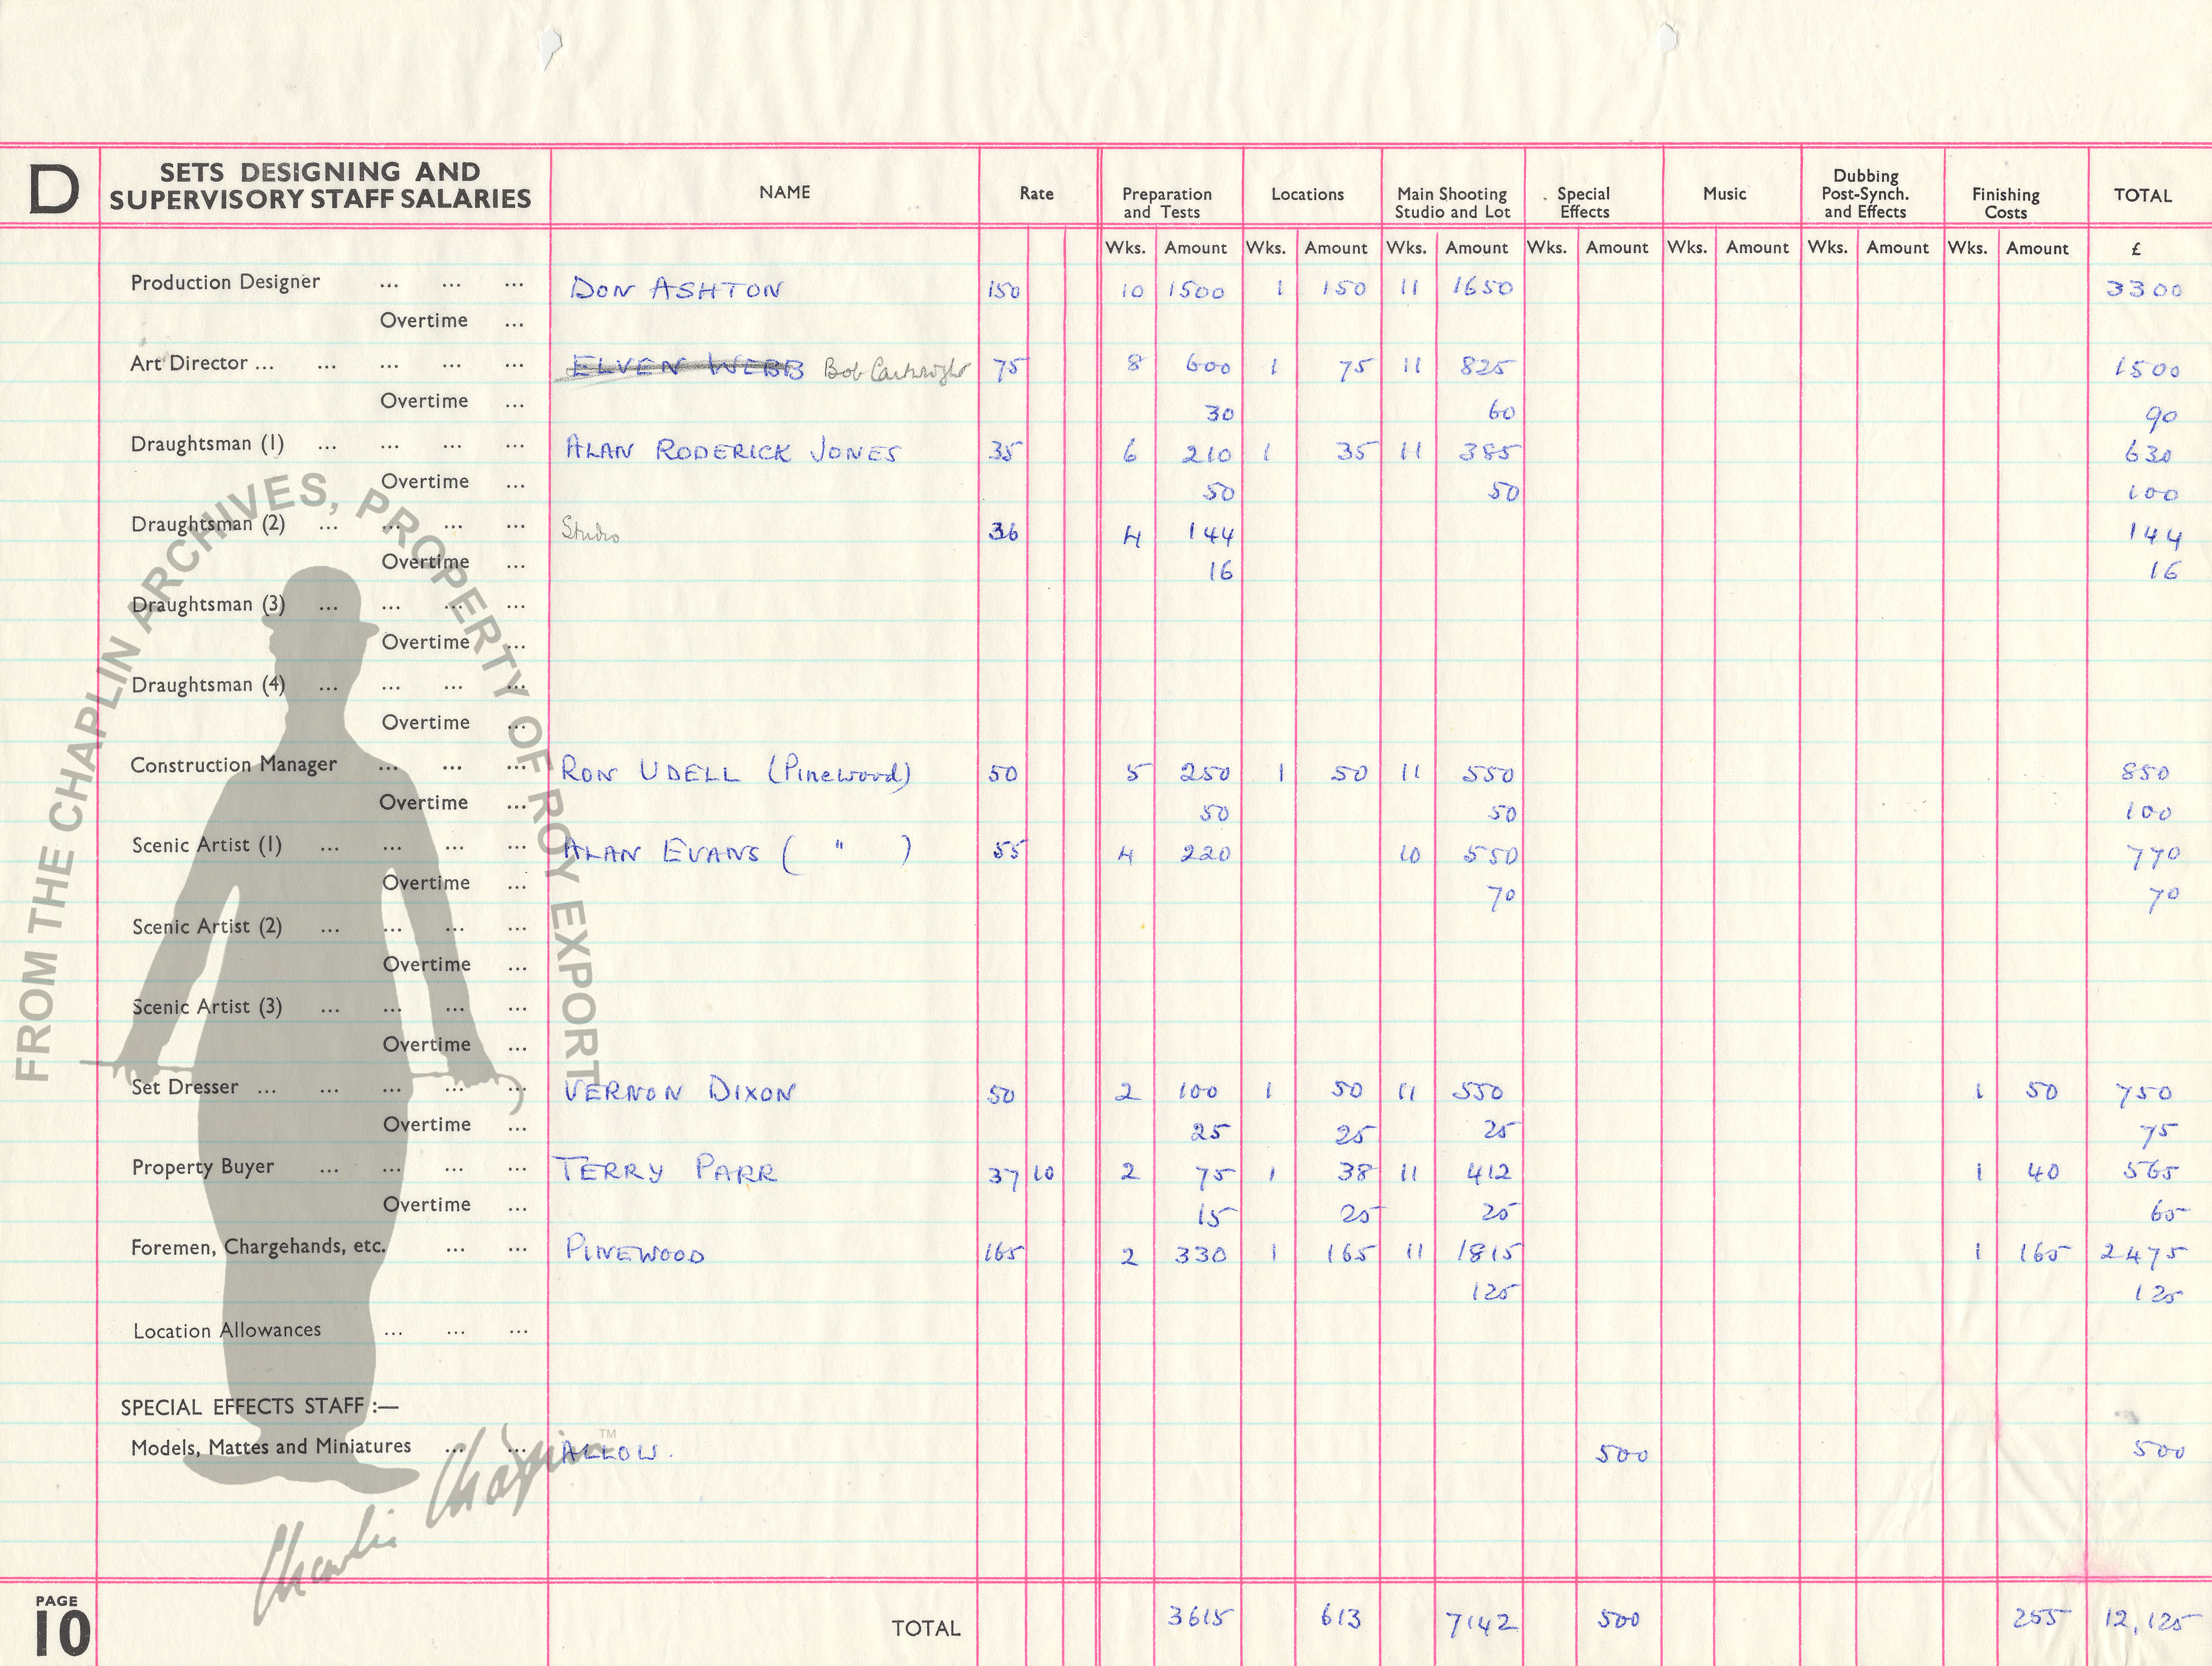 D SETS DESIGNING AND SUPERVISORY STAFF SALARIES NAME Rate Preparation and Tests Locations Main Shooting Studio and Lot Special Effects Music Dubbing Post-Synch. and Effects Finishing Costs TOTAL
Wks. Amount Wks. Amount Wks. Amount Wks. Amount Wks. Amount Wks. Amount Wks. Amount £
Production Designer ... ... ... DON ASHTON 150 10 1500 1 150 11 1650 3300
Overtime ...
Art Director ... ... ... ... ELVEN WEBB Bob Cartwright 75 8 600 1 75 11 825 1500
Overtime ... 30 60 90
Draughtsman (1) ... ... ... ... ALAN RODERICK JONES 35 6 210 1 35 11 385 630
Overtime ... 50 50 100
Draughtsman (2) ... ... ... ... Studio 36 4 144 144
Overtime ... 16 16
Draughtsman (3) ... ... ... ...
Overtime ...
Draughtsman (4) ... ... ... ...
Overtime ...
Construction Manager ... ... ... RON UDELL (Pinewood) 50 5 250 1 50 11 550 850
Overtime ... 50 50 100
Scenic Artist (1) ... ... ... ... ALAN EVANS ( " ) 55 4 220 10 550 770
Overtime ... 70 70
Scenic Artist (2) ... ... ... ...
Overtime ...
Scenic Artist (3) ... ... ... ...
Overtime ...
Set Dresser ... ... ... ... ... VERNON DIXON 50 2 100 1 50 11 550 1 50 750
Overtime ... 25 25 25 75
Property Buyer ... ... ... ... TERRY PARR 37 10 2 75 1 38 11 412 1 40 565
Overtime ... 15 25 25 65
Foremen, Chargehands, etc. ... ... PINEWOOD 165 2 330 1 165 11 1815 1 165 2475
125 125
Location Allowances ... ... ...
SPECIAL EFFECTS STAFF :—
Models, Mattes and Miniatures ... ... ALLOW. 500 500
PAGE
10 TOTAL 3615 613 7142 500 255 12,125
FROM THE CHAPLIN ARCHIVES, PROPERTY OF ROY EXPORT
Charlie Chaplin ™